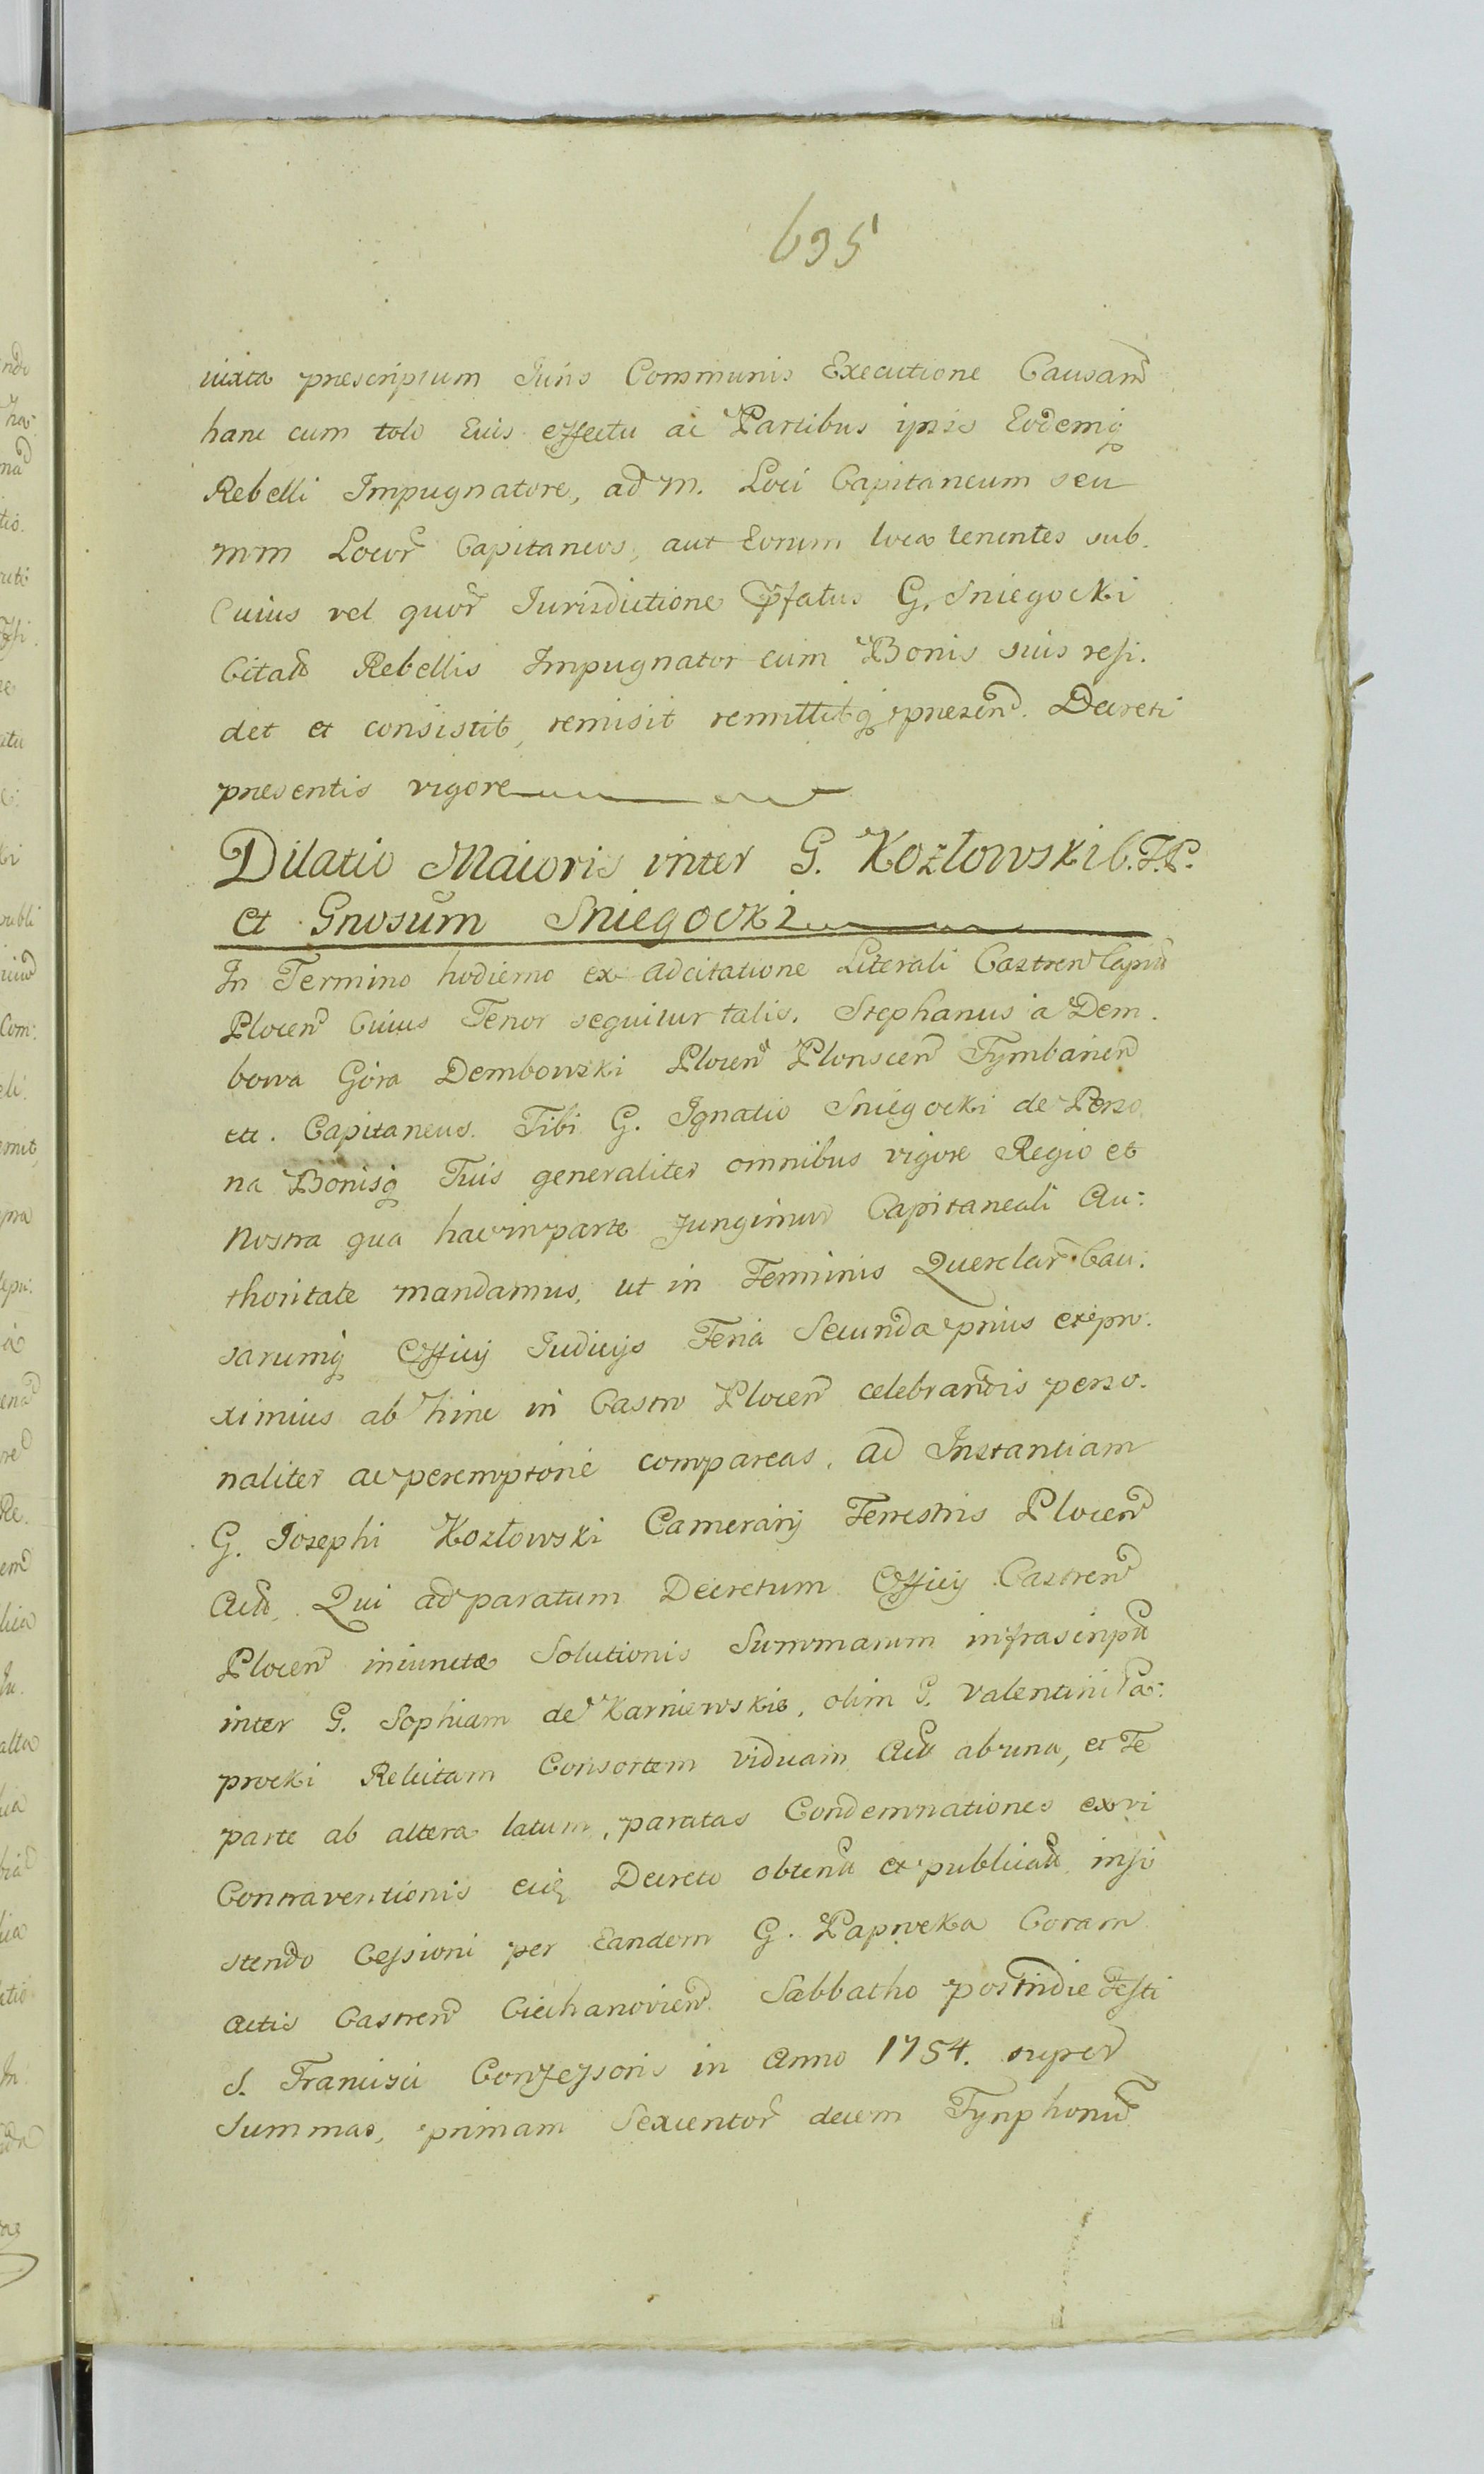 695
iuxta prescriptum Iuris Communis Executione Causam
hanc cum toto Eius effectu ac Partibus ipsis Eodemq
Rebelli Impugnatore, ad m. Loci Capitaneum seu
mm Locor Capitaneos, aut Eorum loca tenentes sub
Cuius vel quor Iurisdictione Pfatus G. Sniegocki
Citatus Rebellis Impugnator cum Bonis suis resi.
det et consistit, remisit remittitq presen. Decreti
presentis vigore
Dilatio Maioris inter G. Kozłowski C.T.P.
et Gnosum Sniegocki
In Termino hodierno ex adcitatione Literali Castren Capiti
Plocen Cuius Tenor sequitur talis. Stephanus a Dem.
bowa Góra Dembowski Plocen Plonscen Tymbarien
etc. Capitaneus. Tibi G. Ignatio Sniegocki de Perso
na Bonisq Tuis generaliter omnibus vigore Regio et
Nostra qua hac in parte fungimur Capitaneali Au:
thoritate mandamus, ut in Terminis Querelar Cau:
sarumq Officij Iudicijs Feria Secunda prius et pro.
ximius ab hinc in Castro Plocen celebrandis perso.
naliter ac peremptorie compareas, ad Instantiam
G. Iosephi Kozłowski Camerarij Terrestris Plocen
Act. Qui ad paratum Decretum Officij Castren
Plocen iniunctæ Solutionis Summarum infrascript
inter G. Sophiam de Karniewskie, olim G. Valentini Pa:
procki Relictam Consortem viduam Act ab una, et Te
parte ab altera latum, paratas Condemnationes ex vi
Contraventionis eid Decreto obtent et publicat, insi
stendo Cessioni per Eandem G. Paprocka Coram
actis Castren Ciechanovien Sabbatho postridie Festi
S. Francisci Confessoris in Anno 1754. super
Summas, primam Sexcentor decem Tynphonum